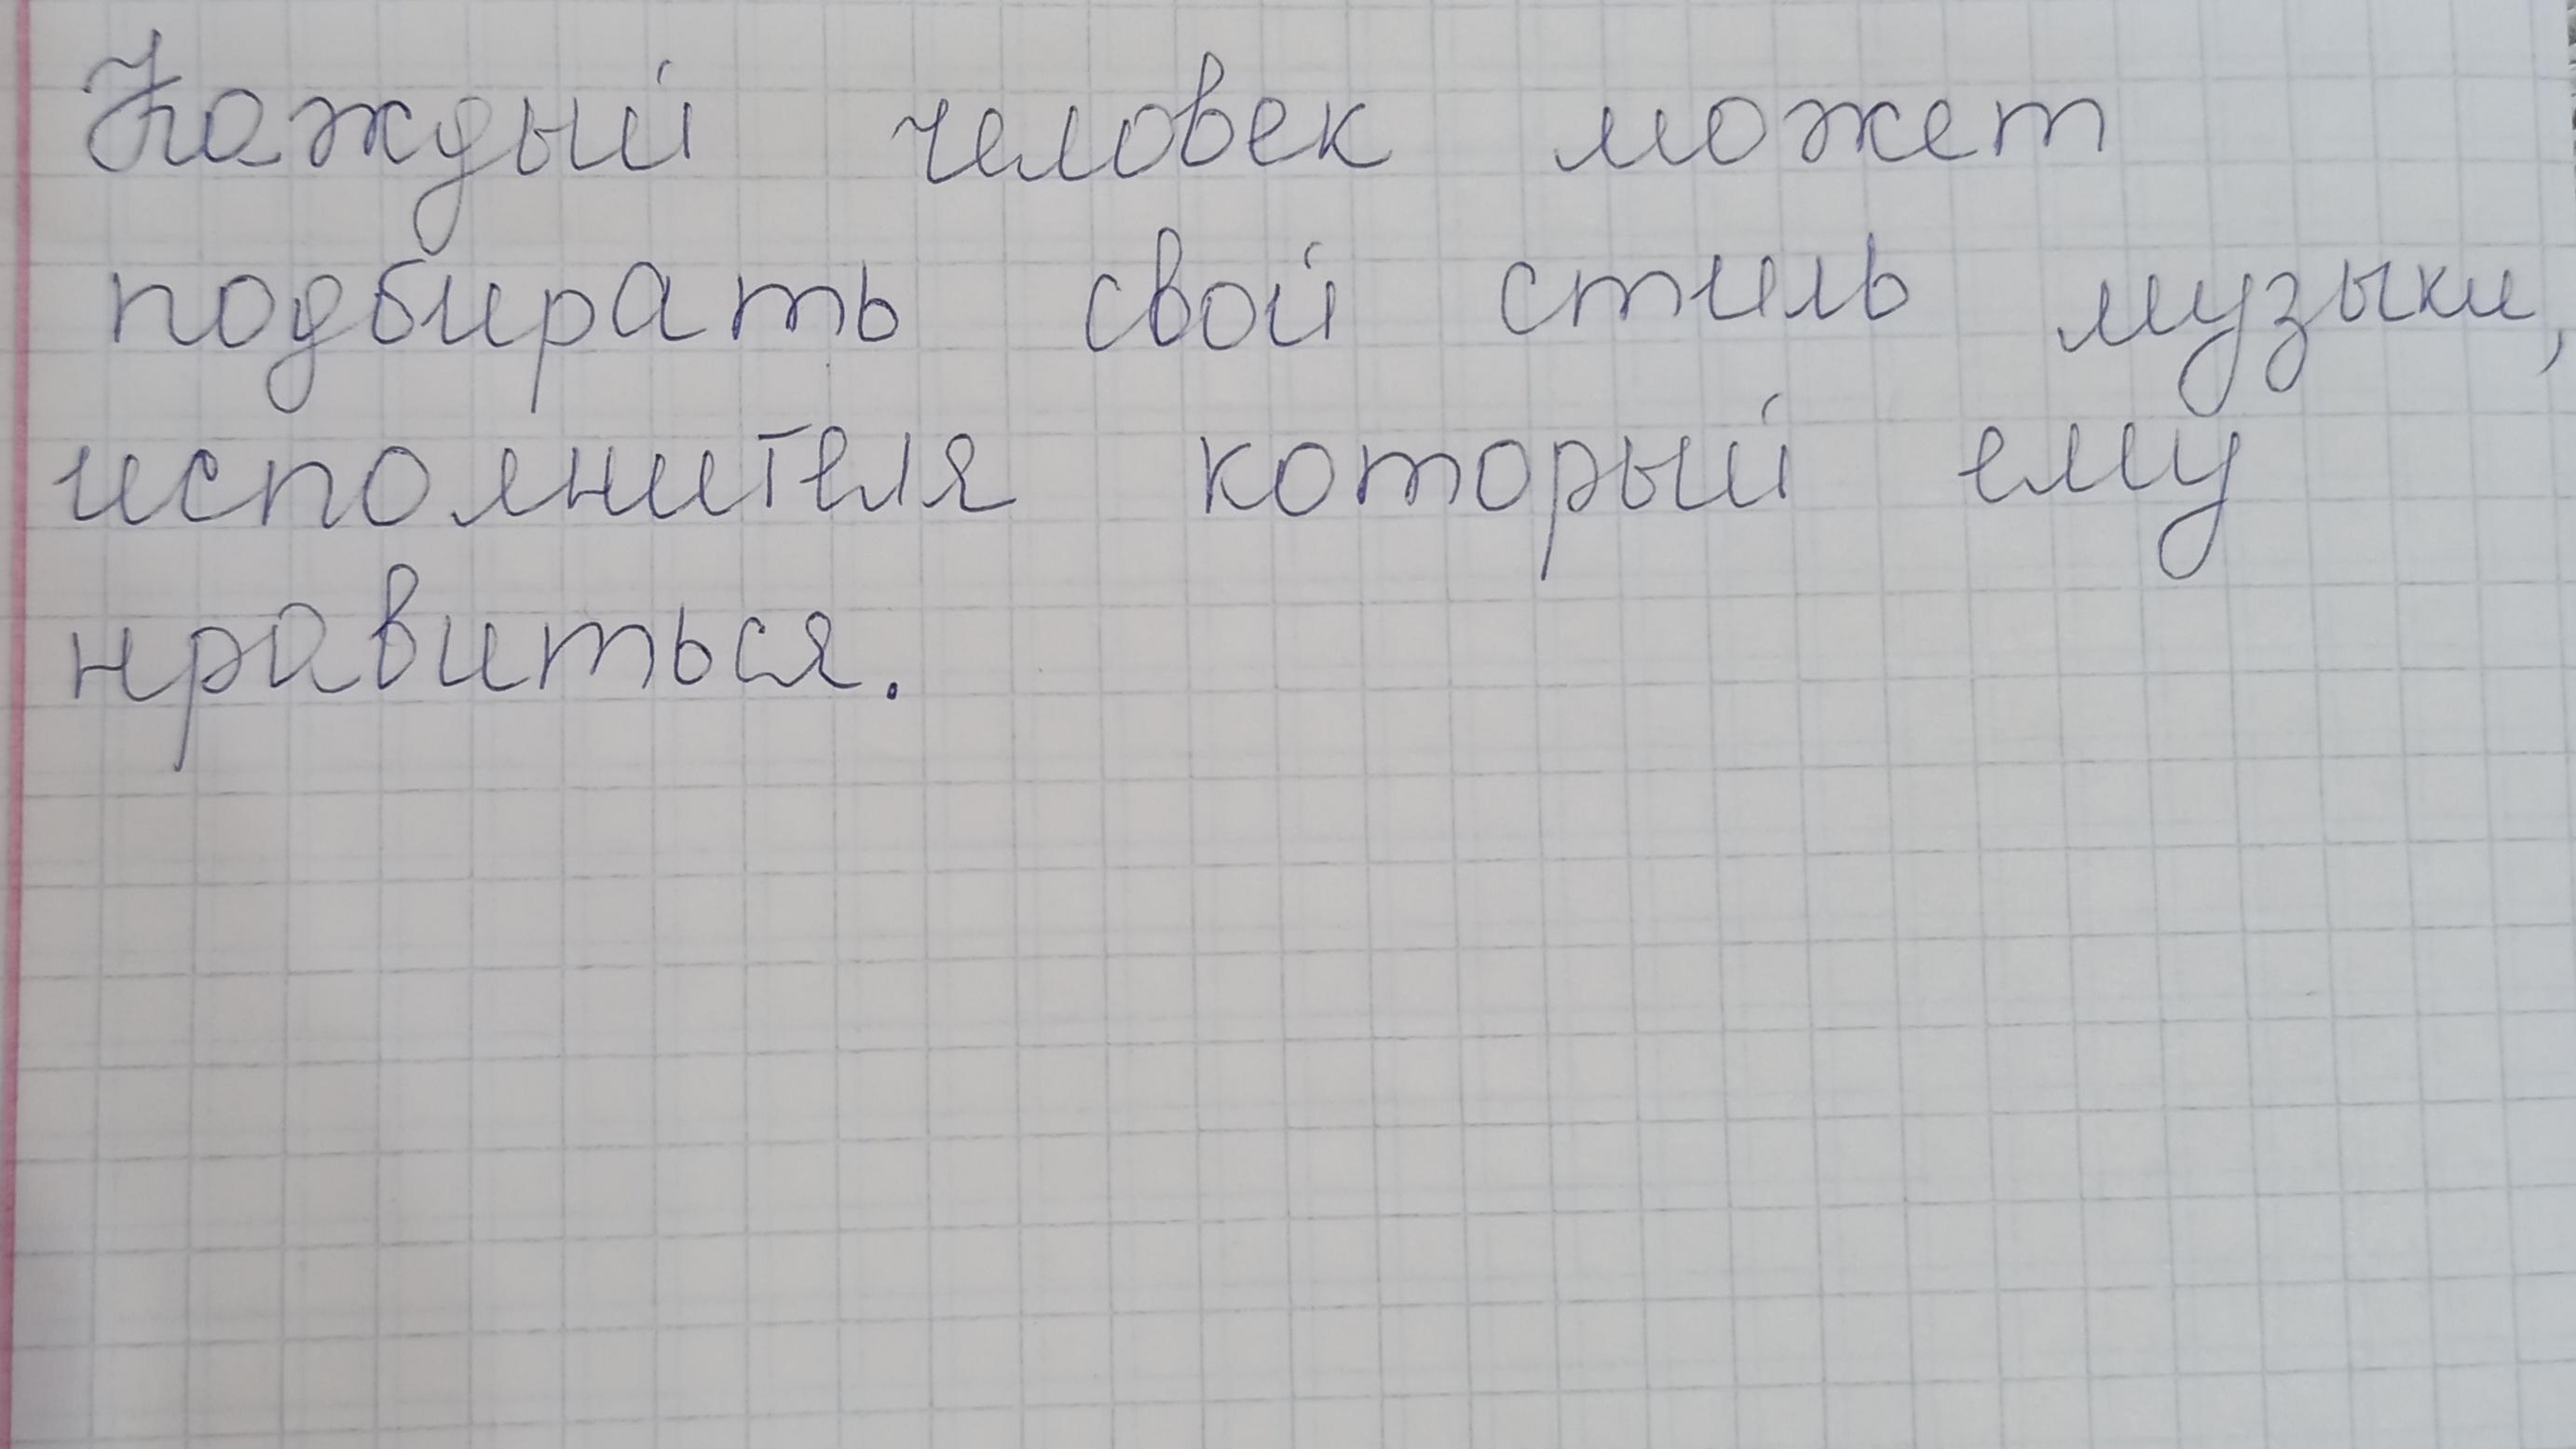 Каждый человек может
подбирать свой стиль музыки,
исполнителя который ему
нравиться.